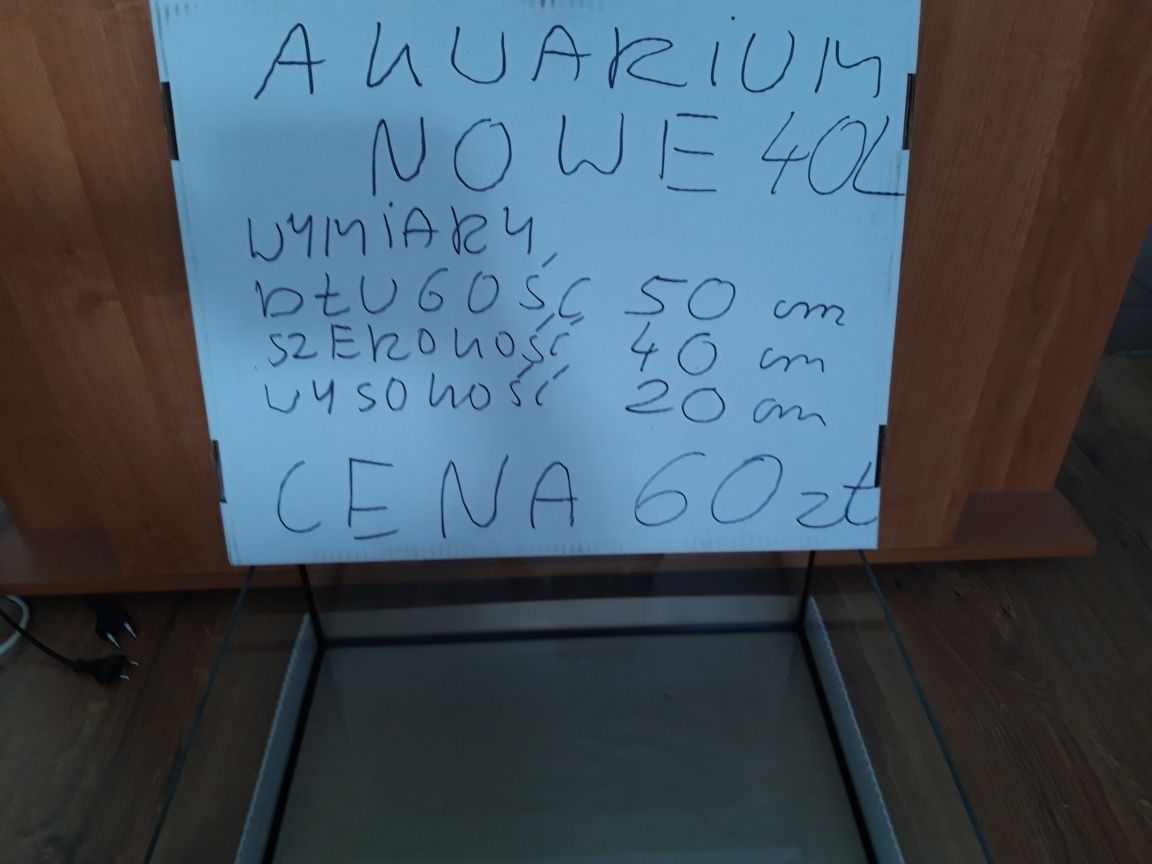 AKUARIUM
NOWE 40L
WYMIARY,
DŁUGOŚĆ 50 cm
SZEROKOŚĆ 40 cm
WYSOKOŚĆ 20 cm
CENA 60 zł